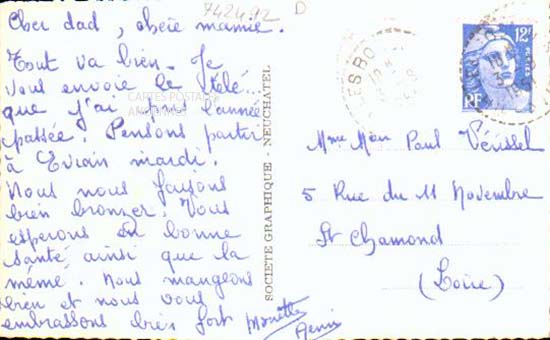 7424.92 D
Cher dad, chère mamie.
Tout va bien. Je
vous envoie le télé...
que j'ai pris l'année
passée. Pensons partir
à Evian mardi.
Nous nous faisons
bien bronzer. Vous
esperons en bonne
santé ainsi que la
mémé. Nous mangeons
bien et nous vous
embrassons bien fort
CARTES POSTALES
ANCIENNES
SOCIETE GRAPHIQUE - NEUCHATEL
12F
RF
Paul Vérissel
5 Rue du 11 Novembre
St Chamond
(Loire)